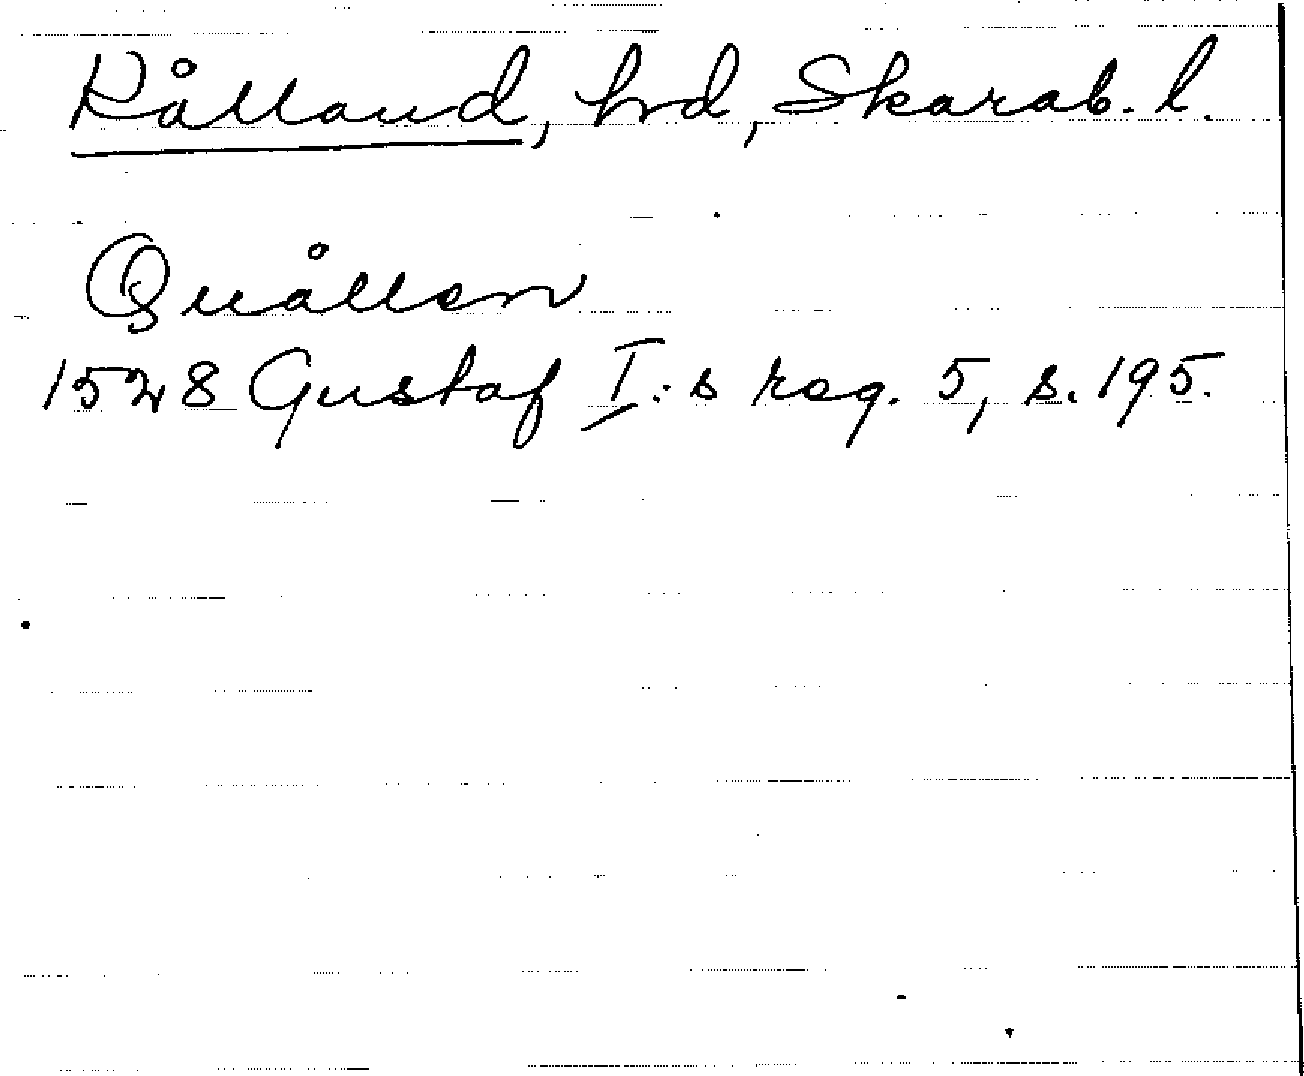 Kålland, hrd, Skarab. l.
Quållen
1528 Gustaf I:s reg. 5, s. 195.